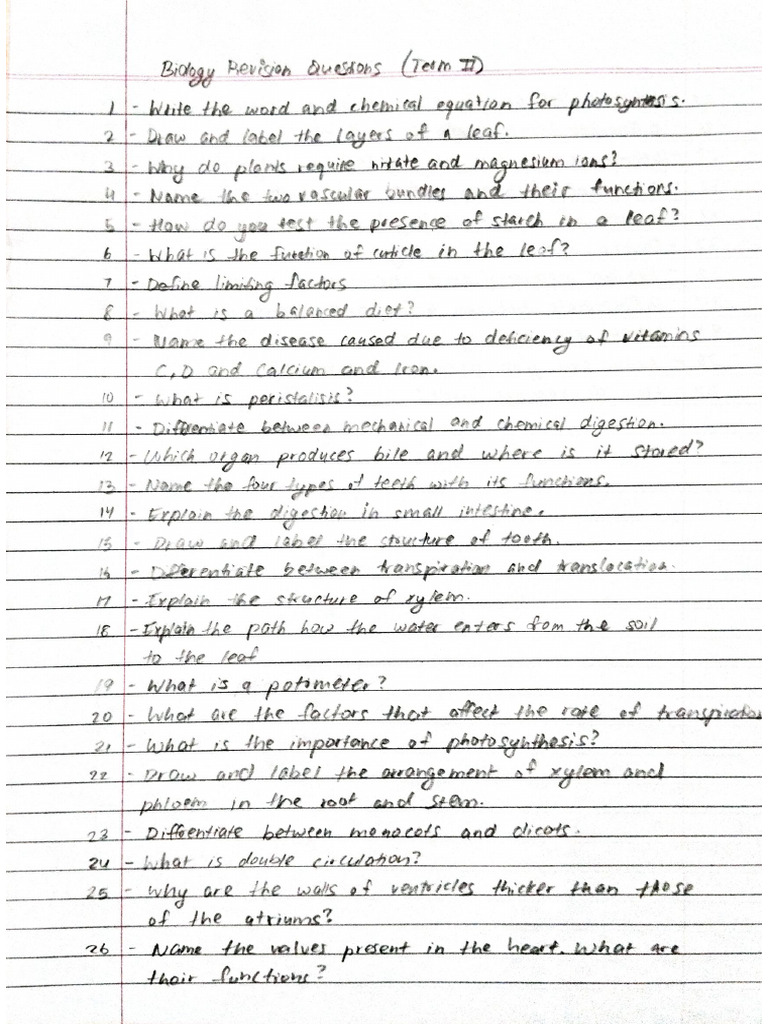 Biology Revision Questions (Term II)
1 - Write the word and chemical equation for photosynthesis.
2 - Draw and label the layers of a leaf.
3 - Why do plants require nitrate and magnesium ions?
4 - Name the two vascular bundles and their functions.
5 - How do you test the presence of starch in a leaf?
6 - What is the function of cuticle in the leaf?
7 - Define limiting factors
8 - What is a balanced diet?
9 - Name the disease caused due to deficiency of vitamins
C, D and Calcium and Iron.
10 - What is peristalisis?
11 - Differentiate between mechanical and chemical digestion.
12 - Which organ produces bile and where is it stored?
13 - Name the four types of teeth with its functions.
14 - Explain the digestion in small intestine.
15 - Draw and label the structure of tooth.
16 - Differentiate between transpiration and translocation.
17 - Explain the structure of xylem.
18 - Explain the path how the water enters from the soil
to the leaf
19 - What is a potometer?
20 - What are the factors that affect the rate of transpiration
21 - What is the importance of photosynthesis?
22 - Draw and label the arrangement of xylem and
phloem in the root and stem.
23 - Diffentiate between monocots and dicots.
24 - What is double circulation?
25 - Why are the walls of ventricles thicker than those
of the atriums?
26 - Name the valves present in the heart. What are
their functions?